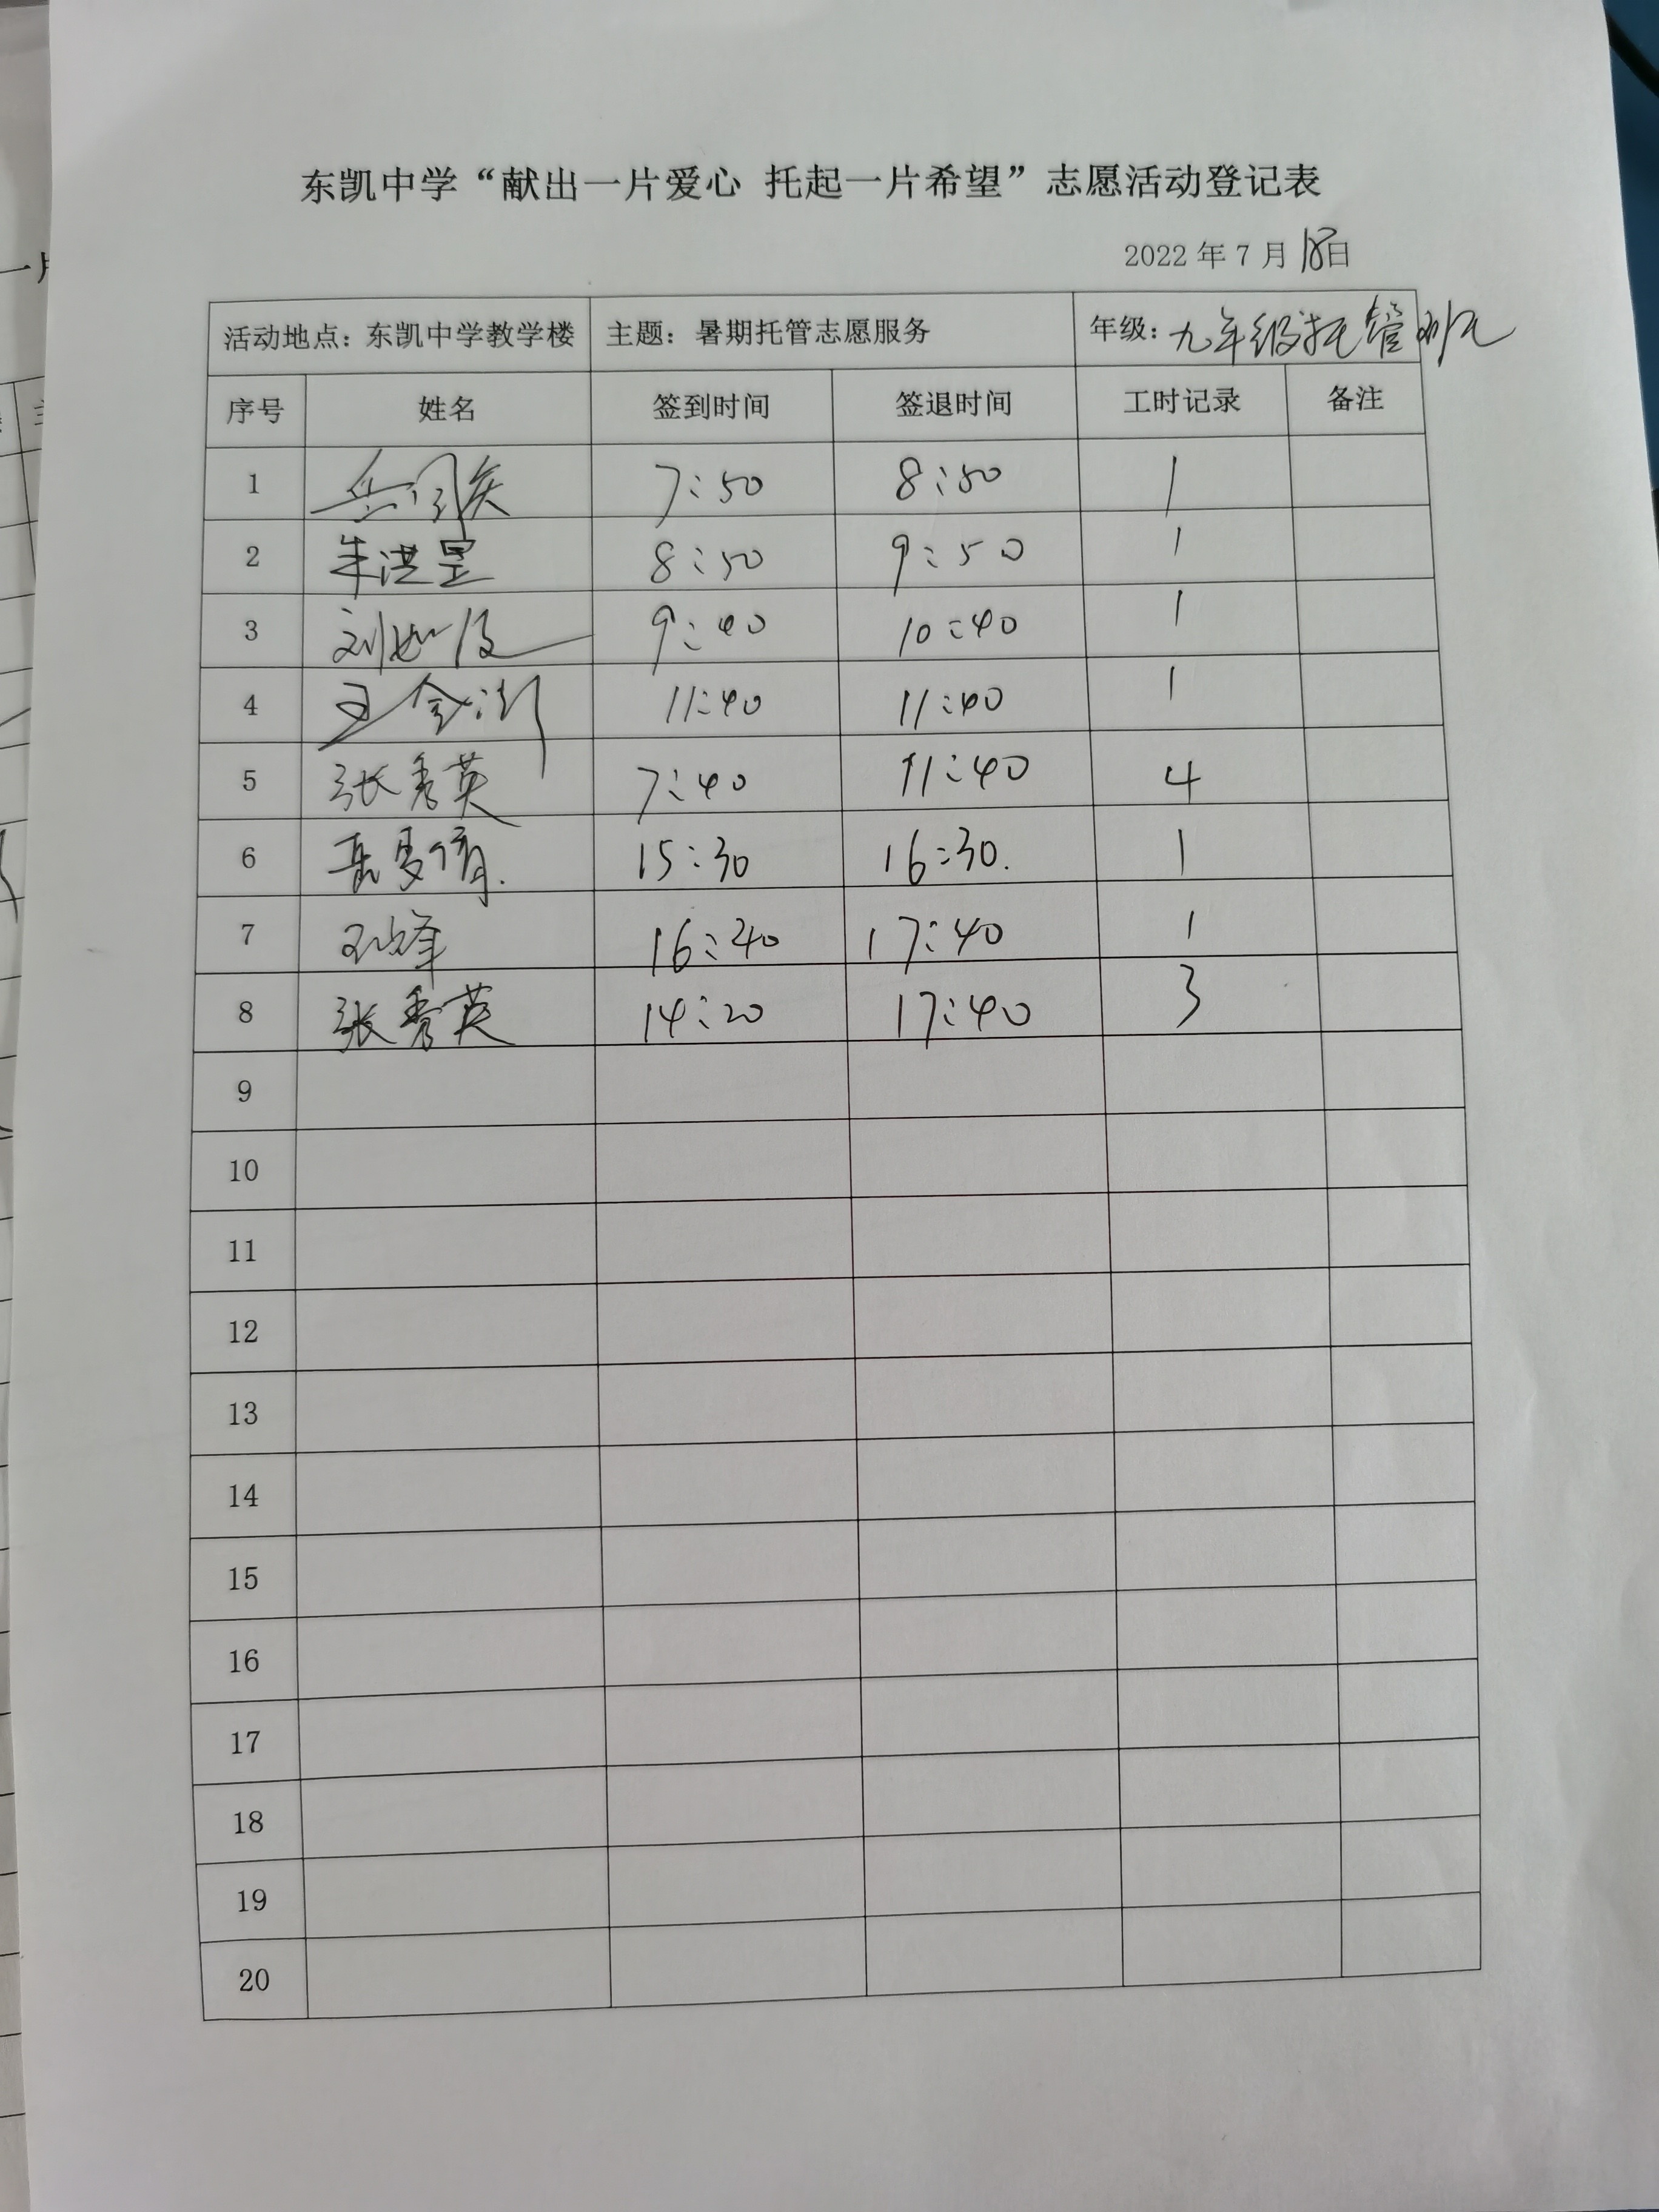 东凯中学“献出一片爱心 托起一片希望”志愿活动登记表
2022 年 7 月 18日
活动地点：东凯中学教学楼 主题：暑期托管志愿服务 年级：九年级托管班
序号 姓名 签到时间 签退时间 工时记录 备注
1 7:50 8:50 1
2 朱洪昱 8:50 9:50 1
3 刘 9:40 10:40 1
4 王金 11:40 11:40 1
5 张秀英 7:40 11:40 4
6 15:30 16:30. 1
7 王峰 16:40 17:40 1
8 张秀英 14:20 17:40 3
9
10
11
12
13
14
15
16
17
18
19
20